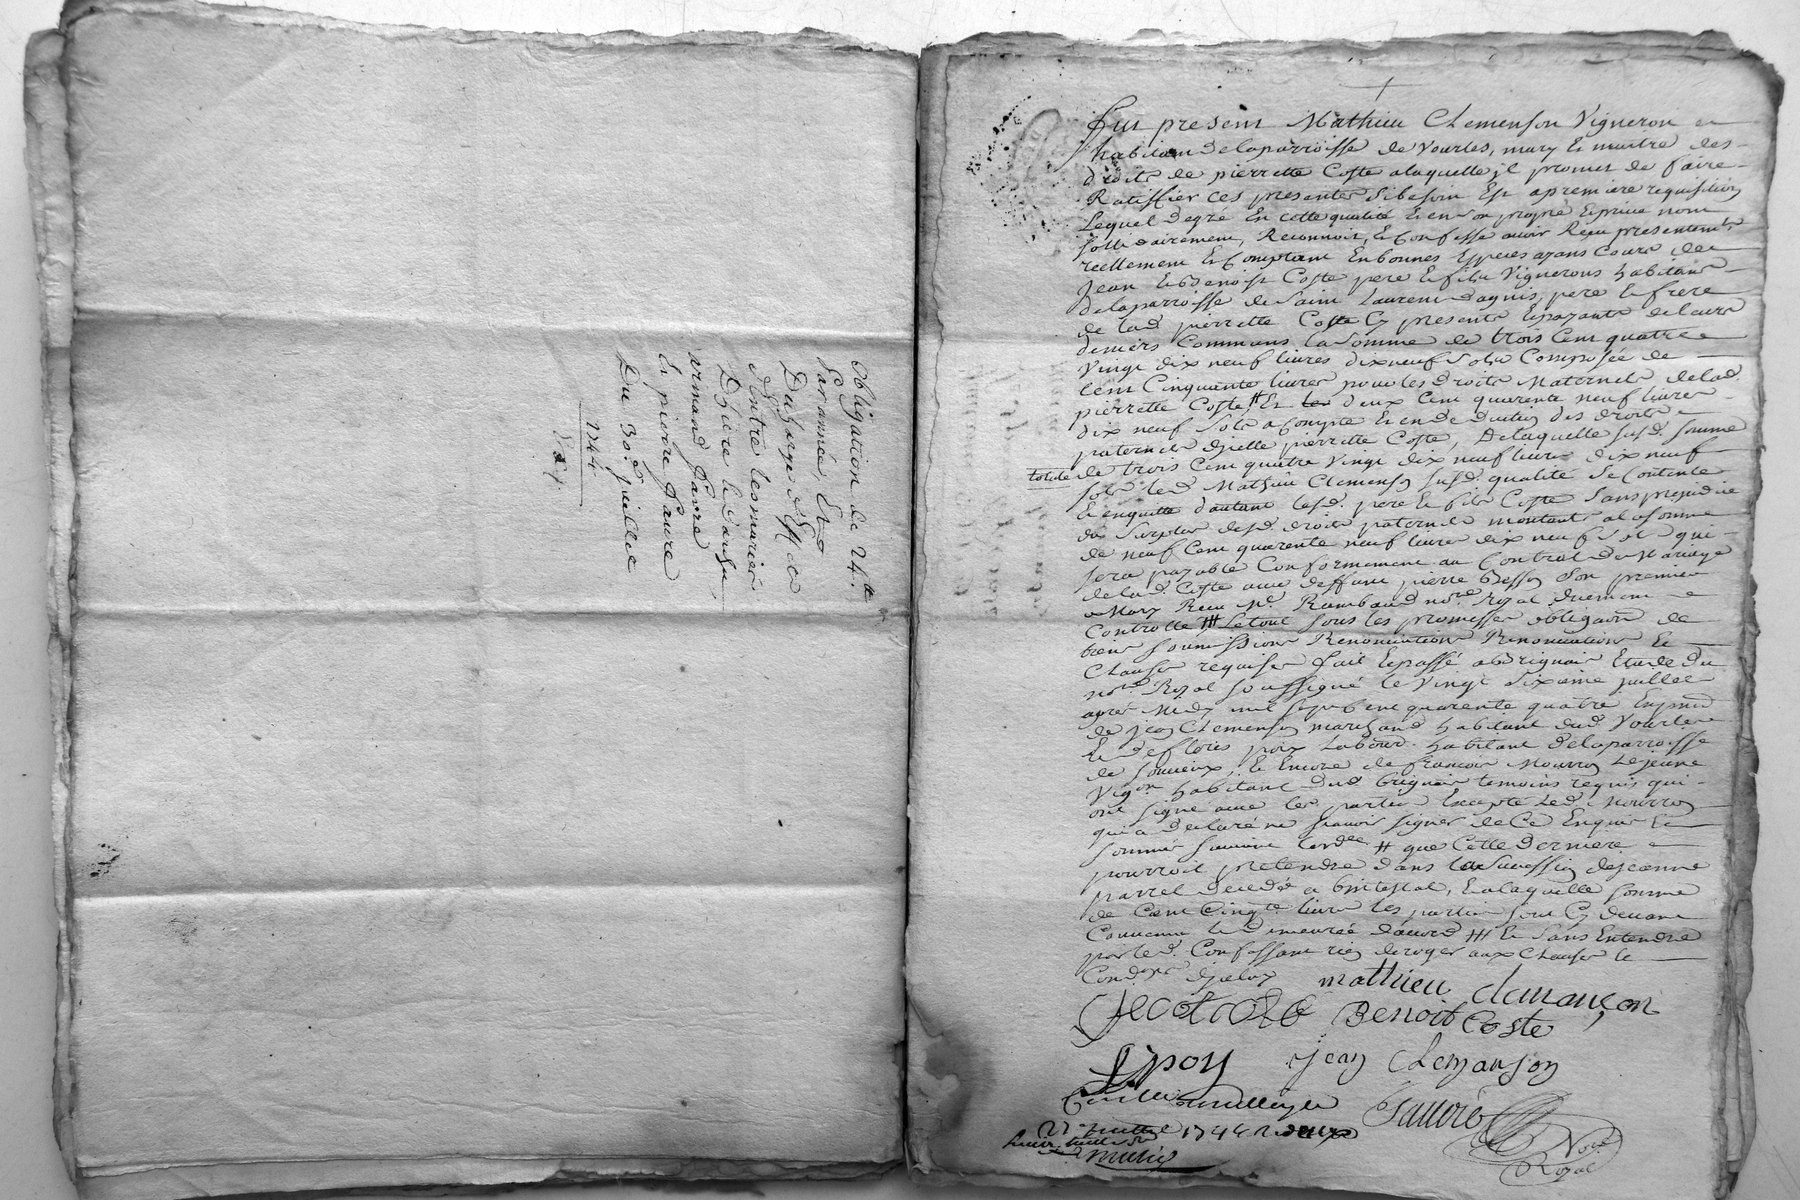 Obligation de 24.ᵗᵗ
Garannée, Et
Ducharge d'Effect
d'Entre les mariés
D'hiere le dardu
armand faure
Et pierre faure
Du 30.ᵉ Juillet
1744
Fut present Mathieu Clemenson Vigneron et
habitant delaparroisse de Vourles, mary Et maitre des
droits de pierrette Coste alaquelle jl promet de faire
Ratiffier ces presentes sibesoin Est apremiere requisition
Lequel degré En cette qualité Et en son propre Et privé nom
sollidairement, Reconnoit, Et Confesse avoir Reçu presentemt
reellement Et Comptant En bonnes Especes ayans cours de
Jean Et Benoist Coste pere Et fils Vignerons habitans
delaparroisse de Saint Laurent dagnis, pere Et frere
de lad pierrette Coste Cy presents Et payants de leurs
deniers Communs la somme de trois Cent quatre
Vingt dix neuf livres dixneuf sols Composée de
Cent Cinquante livres pour les droits Maternels delad.
pierrette Coste, # Et les deux Cent quarente neuf livres
dix neuf sols acompte Et en deduction des droits
paternels d'jcelle pierrette Coste, de laquelle susd. somme
totale de trois Cent quatre Vingt dix neuf livres dix neuf
sols led Mathieu Clemenson susd. qualité se Contente
Et enquitte d'autant lesd. pere Et fils Coste sans prejudice
du Surplus desd. droits paternels montants alasomme
de neuf Cent quarente neuf livres dix neuf sols qui
sera payable Conformement au Contrat de Mariage
delad. Coste avec deffunt pierre Besson son premier
Mary Reçu Me. Rambaud nore. Royal duement
Controllé ## Letout sous les promesses obligaõn de
biens soumissions Renonciations Renonciations Et
Clauses requises fait Et passé aBrignais Etude du
nore. Royal soussigné le Vingt Sixieme juillet
apres Midy mil sept cent quarente quatre En pnce
de jean Clemenson marchand habitant dud. Vourles
Et de Flories poix Labour. habitant delaparroisse
de soucieux Et Encore de françois Mourron Lejeune
Vigon habitant dud brignais temoins requis qui
ont signé avec les parties Excepté Led. Mourron
qui a declaré ne sçavoir signer de Ce Enquis Et
sommé suivant lordce # que Cette derniere
pourroit pretendre dans la Succession dejeanne
parrel decedée abintestat, Et alaquelle somme
de Cent Cinqte livres les parties sont Cy devant
Convenu Et demeurée daccord ## Et sans Entendre
par led. Confessant rien deroger aux Clauses Et
Condõns d'jceluy
mathieu clemançon
Jean Coste Benoit Coste
f poy jean Clemanson
27 juillet 1744
Royal